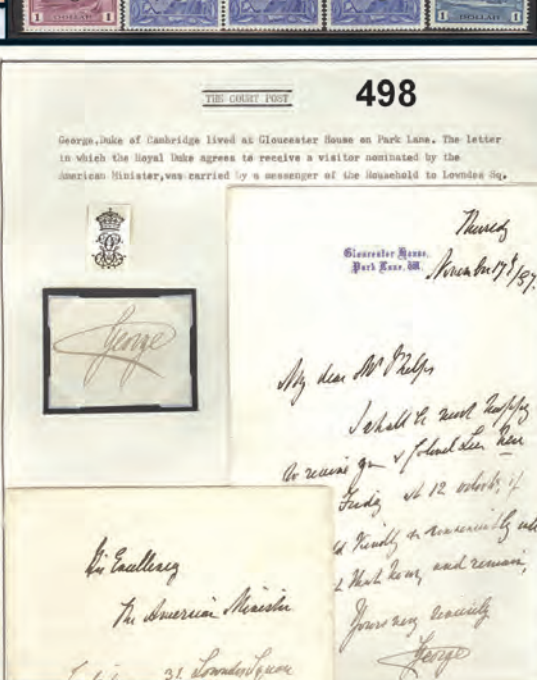 1 DOLLAR 1
1 DOLLAR 1
498
THE COURT POST
George,Duke of Cambridge lived at Gloucester House on Park Lane. The letter
in which the Royal Duke agrees to receive a visitor nominated by the
American Minister,was carried by a messenger of the Household to Lowndes Sq.
George
Gloucester House,
Park Lane, W.
November 17th/87.
My dear Mr Phelps
I shall be most happy
to receive you & Colonel Lee here
Friday at 12 o'clock, if
kindly & conveniently
that hour, and remain,
Yours very sincerely
George
His Excellency
The American Minister
31 Lowndes Square